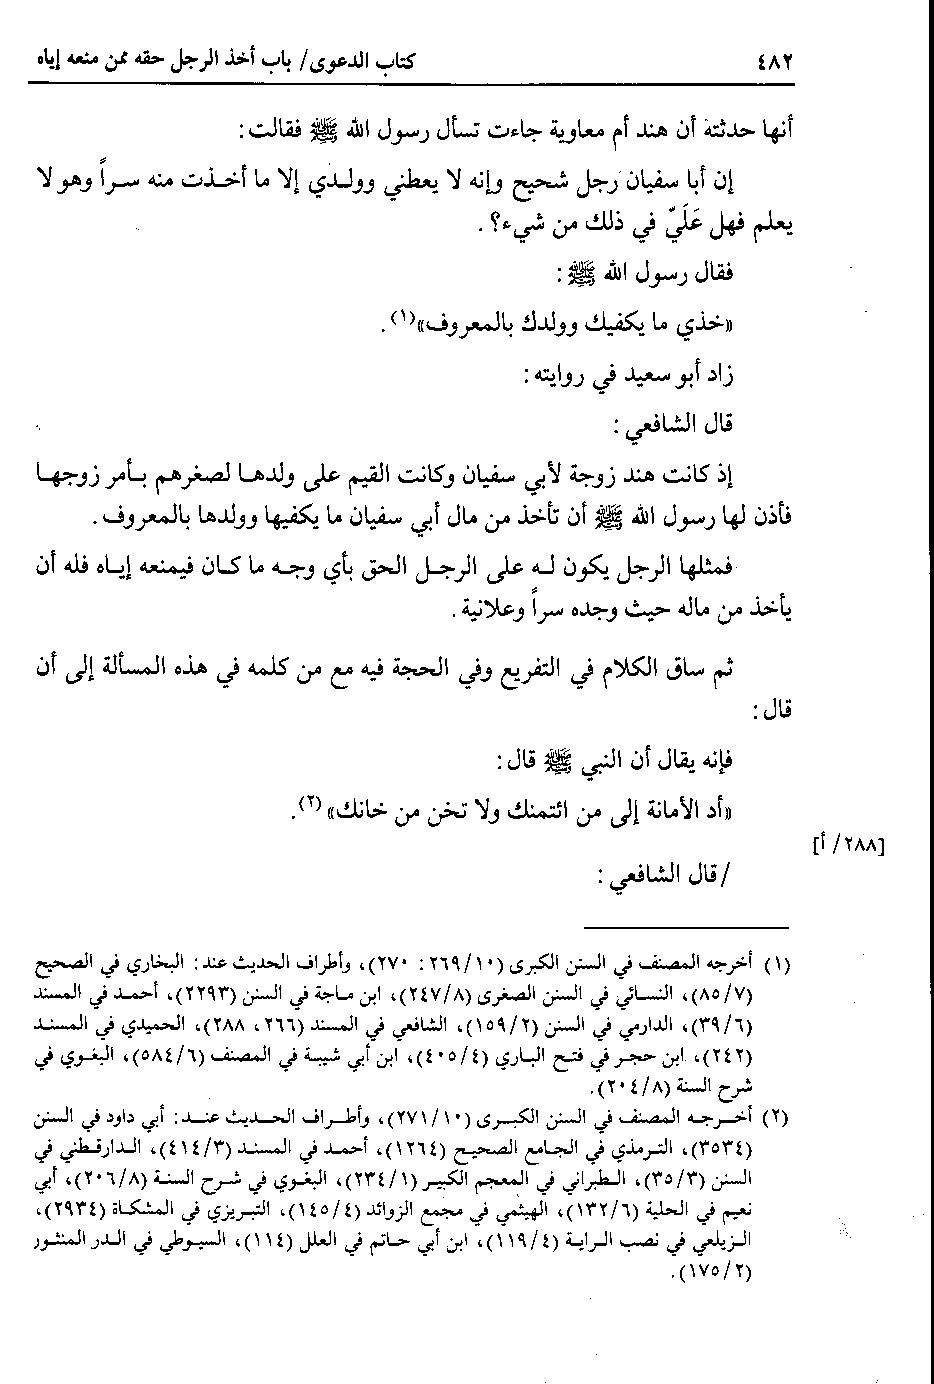 ٤٨٢ كتاب الدعوى/ باب أخذ الرجل حقه ممن منعه إياه
أنها حدثته أن هند أم معاوية جاءت تسأل رسول الله ﷺ فقالت:
إن أبا سفيان رجل شحيح وإنه لا يعطني وولدي إلا ما أخذت منه سراً وهو لا
يعلم فهل عَلَيّ في ذلك من شيء؟.
فقال رسول الله ﷺ:
«خذي ما يكفيك وولدك بالمعروف»(١).
زاد أبو سعيد في روايته:
قال الشافعي:
إذ كانت هند زوجة لأبي سفيان وكانت القيم على ولدها لصغرهم بأمر زوجها
فأذن لها رسول الله ﷺ أن تأخذ من مال أبي سفيان ما يكفيها وولدها بالمعروف.
فمثلها الرجل يكون له على الرجل الحق بأي وجه ما كان فيمنعه إياه فله أن
يأخذ من ماله حيث وجده سراً وعلانية.
ثم ساق الكلام في التفريع وفي الحجة فيه مع من كلمه في هذه المسألة إلى أن
قال:
فإنه يقال أن النبي ﷺ قال:
«أد الأمانة إلى من ائتمنك ولا تخن من خانك»(٢).
[٢٨٨/ أ]
/قال الشافعي:
(١) أخرجه المصنف في السنن الكبرى (٢٦٩/١٠: ٢٧٠)، وأطراف الحديث عند: البخاري في الصحيح
(٨٥/٧)، النسائي في السنن الصغرى (٢٤٧/٨)، ابن ماجة في السنن (٢٢٩٣)، أحمد في المسند
(٣٩/٦)، الدارمي في السنن (١٥٩/٢)، الشافعي في المسند (٢٦٦، ٢٨٨)، الحميدي في المسند
(٢٤٢)، ابن حجر في فتح الباري (٤٠٥/٤)، ابن أبي شيبة في المصنف (٥٨٤/٦)، البغوي في
شرح السنة (٢٠٤/٨).
(٢) أخرجه المصنف في السنن الكبرى (٢٧١/١٠)، وأطراف الحديث عند: أبي داود في السنن
(٣٥٣٤)، الترمذي في الجامع الصحيح (١٢٦٤)، أحمد في المسند (٤١٤/٣)، الدارقطني في
السنن (٣٥/٣)، الطبراني في المعجم الكبير (٢٣٤/١)، البغوي في شرح السنة (٢٠٦/٨)، أبي
نعيم في الحلية (١٣٢/٦)، الهيثمي في مجمع الزوائد (١٤٥/٤)، التبريزي في المشكاة (٢٩٣٤)،
الزيلعي في نصب الراية (١١٩/٤)، ابن أبي حاتم في العلل (١١٤)، السيوطي في الدر المنثور
(١٧٥/٢).